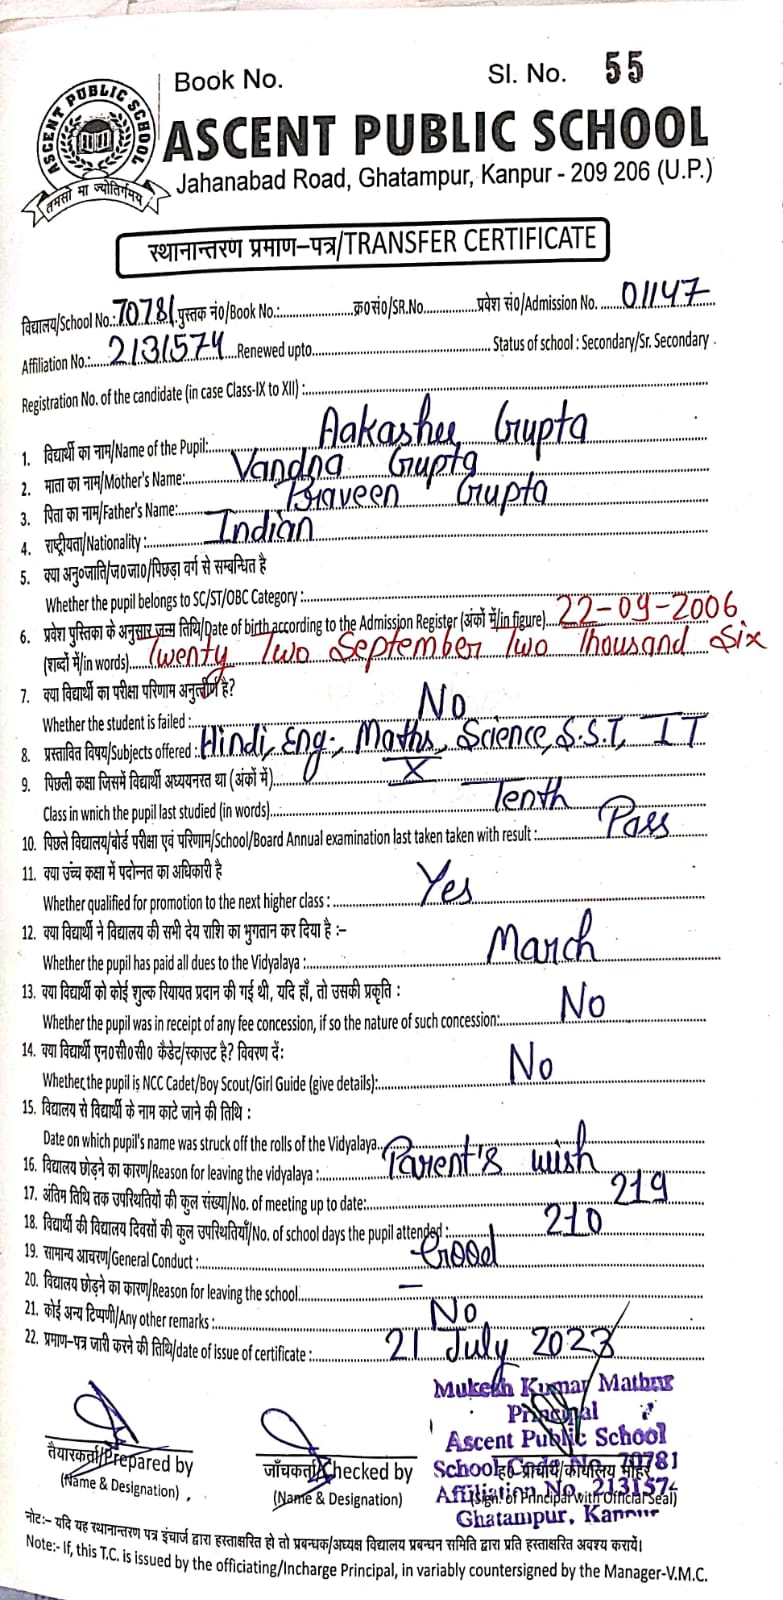 Book No. Sl. No. 55
ASCENT PUBLIC SCHOOL
तमसो मा ज्योतिर्गमय
ASCENT PUBLIC SCHOOL
Jahanabad Road, Ghatampur, Kanpur - 209 206 (U.P.)
स्थानान्तरण प्रमाण-पत्र/TRANSFER CERTIFICATE
विद्यालय/School No.: 70781 पुस्तक नं०/Book No.:.......... क्र०सं०/SR.No.......... प्रवेश सं०/Admission No. 01147
Affiliation No.: 2131574 Renewed upto.......... Status of school : Secondary/Sr. Secondary .
Registration No. of the candidate (in case Class-IX to XII) :..........
1. विद्यार्थी का नाम/Name of the Pupil: Aakashee Gupta
2. माता का नाम/Mother's Name: Vandna Gupta
3. पिता का नाम/Father's Name: Praveen Gupta
4. राष्ट्रीयता/Nationality : Indian
5. क्या अनु०जाति/ज०जा०/पिछड़ा वर्ग से सम्बन्धित है
Whether the pupil belongs to SC/ST/OBC Category :..........
6. प्रवेश पुस्तिका के अनुसार जन्म तिथि/Date of birth according to the Admission Register (अंकों में/in figure) 22-09-2006
(शब्दों में/in words) Twenty Two September Two Thousand Six
7. क्या विद्यार्थी का परीक्षा परिणाम अनुत्तीर्ण है?
Whether the student is failed : No
8. प्रस्तावित विषय/Subjects offered : Hindi, Eng., Maths, Science, S.S.T, IT
9. पिछली कक्षा जिसमें विद्यार्थी अध्ययनरत था (अंकों में) X
Class in wnich the pupil last studied (in words) Tenth
10. पिछले विद्यालय/बोर्ड परीक्षा एवं परिणाम/School/Board Annual examination last taken taken with result : Pass
11. क्या उच्च कक्षा में पदोन्नत का अधिकारी है
Whether qualified for promotion to the next higher class : Yes
12. क्या विद्यार्थी ने विद्यालय की सभी देय राशि का भुगतान कर दिया है :-
Whether the pupil has paid all dues to the Vidyalaya : March
13. क्या विद्यार्थी को कोई शुल्क रियायत प्रदान की गई थी, यदि हाँ, तो उसकी प्रकृति :
Whether the pupil was in receipt of any fee concession, if so the nature of such concession: No
14. क्या विद्यार्थी एन०सी०सी० कैडेट/स्काउट है? विवरण दें:
Whether the pupil is NCC Cadet/Boy Scout/Girl Guide (give details): No
15. विद्यालय से विद्यार्थी के नाम काटे जाने की तिथि :
Date on which pupil's name was struck off the rolls of the Vidyalaya..........
16. विद्यालय छोड़ने का कारण/Reason for leaving the vidyalaya : Parent's wish
17. अंतिम तिथि तक उपस्थितियों की कुल संख्या/No. of meeting up to date: 219
18. विद्यार्थी की विद्यालय दिवसों की कुल उपस्थितियाँ/No. of school days the pupil attended : 210
19. सामान्य आचरण/General Conduct : Good
20. विद्यालय छोड़ने का कारण/Reason for leaving the school –
21. कोई अन्य टिप्पणी/Any other remarks : No
22. प्रमाण-पत्र जारी करने की तिथि/date of issue of certificate : 21 July 2023
Mukesh Kumar Mathur
Principal
Ascent Public School
School Code No. 70781
Affiliation No. 2131574
Ghatampur, Kanpur
तैयारकर्ता/Prepared by
(Name & Designation)
जाँचकर्ता/Checked by
(Name & Designation)
ह० प्राचार्य/कार्यालय मोहर
(Sign. of Principal with Official Seal)
नोट:- यदि यह स्थानान्तरण पत्र इंचार्ज द्वारा हस्ताक्षरित हो तो प्रबन्धक/अध्यक्ष विद्यालय प्रबन्धन समिति द्वारा प्रति हस्ताक्षरित अवश्य करायें।
Note:- If, this T.C. is issued by the officiating/Incharge Principal, in variably countersigned by the Manager-V.M.C.